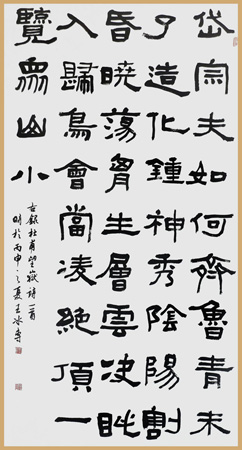 岱宗夫如何齊魯青未
了造化鍾神秀陰陽割
昏曉蕩胷生層雲決眥
入歸鳥會當凌絕頂一
覽眾山小
録杜甫望嶽詩一首
時於丙申之夏王冰書